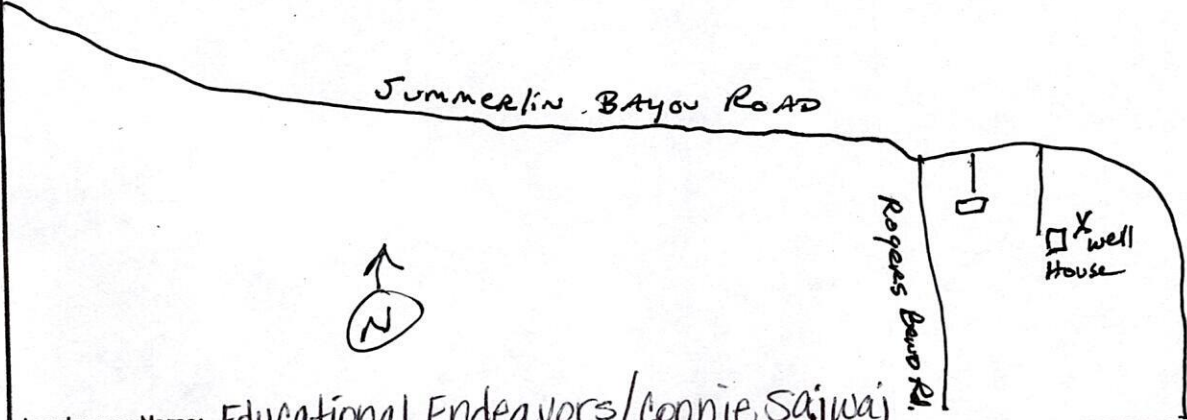 Summerlin Bayou Road
Rogers Bend Rd.
X well
House
N
Educational Endeavors/Connie Sajwaj